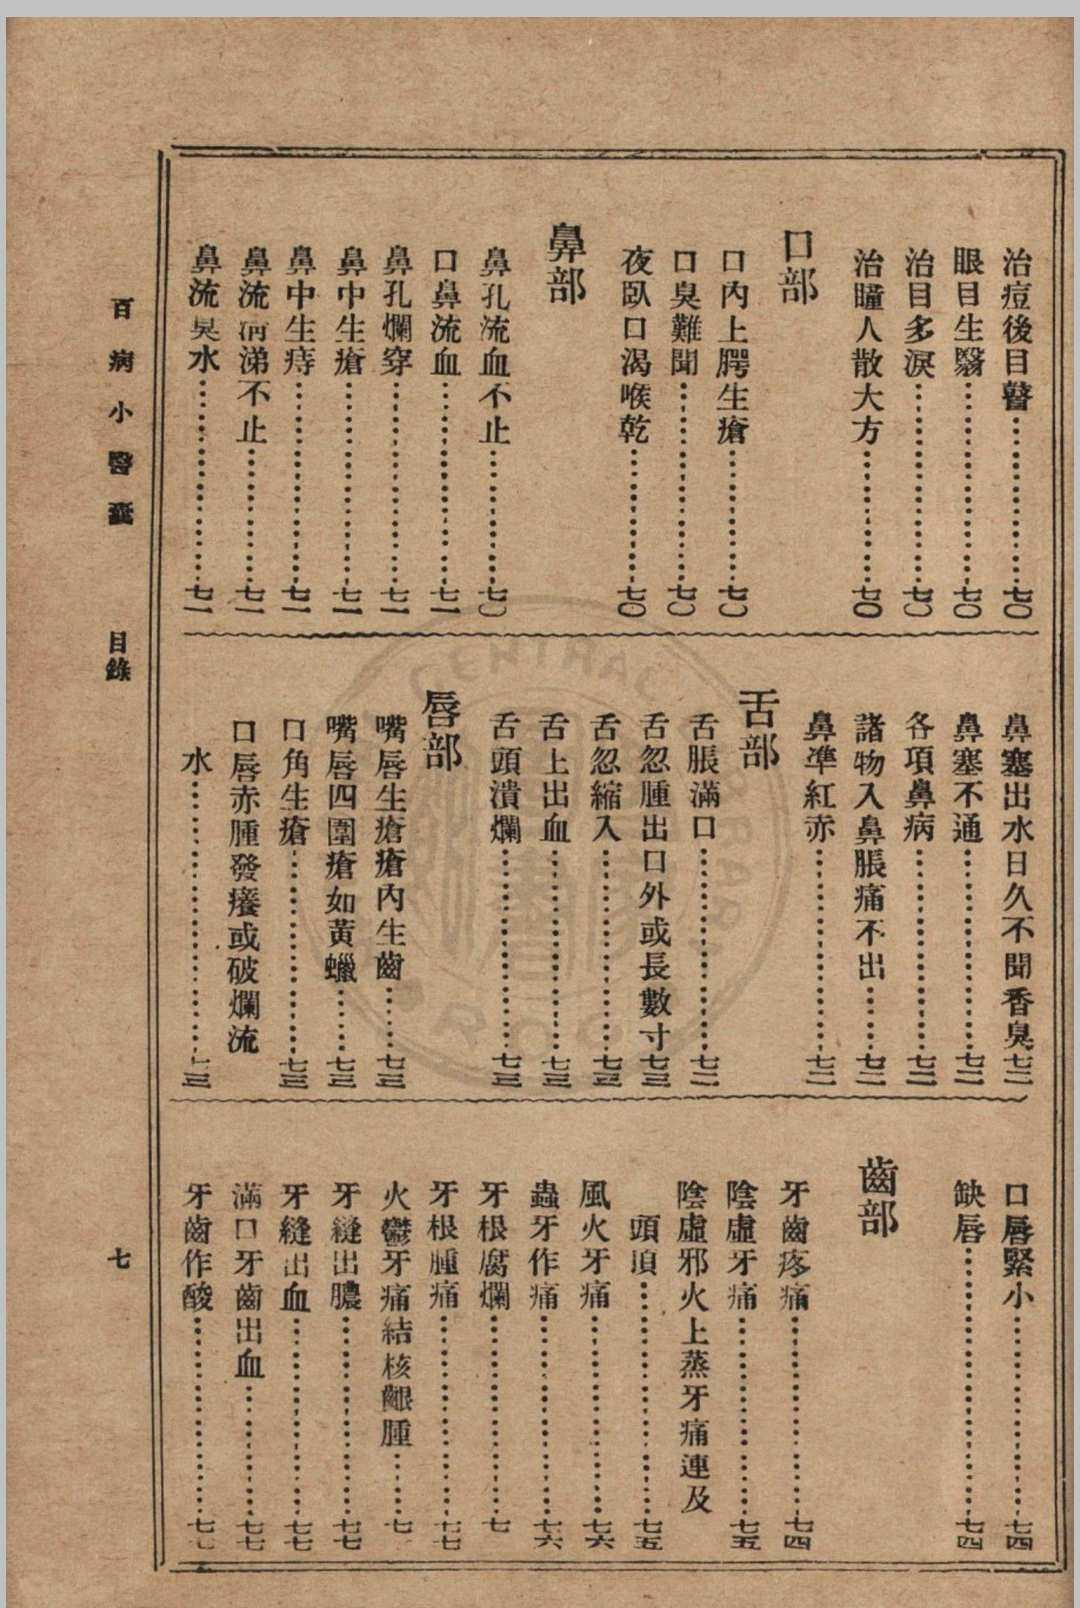 治痘後目瞽…………七〇
眼目生翳…………七〇
治目多淚…………七〇
治瞳人散大方…………七〇
口部
口內上腭生瘡…………七〇
口臭難聞…………七〇
夜臥口渴喉乾…………七〇
鼻部
鼻孔流血不止…………七〇
口鼻流血…………七一
鼻孔爛穿…………七一
鼻中生瘡…………七一
鼻中生痔…………七一
鼻流清涕不止…………七一
鼻流臭水…………七一
鼻塞出水日久不聞香臭七二
鼻塞不通…………七二
各項鼻病…………七二
諸物入鼻脹痛不出……七二
鼻準紅赤…………七二
舌部
舌脹滿口…………七二
舌忽腫出口外或長數寸七三
舌忽縮入…………七三
舌上出血…………七三
舌頭潰爛…………七三
唇部
嘴唇生瘡瘡內生齒……七三
嘴唇四圍瘡如黃蠟……七三
口角生瘡…………七三
口唇赤腫發癢或破爛流
水…………七三
口唇緊小…………七四
缺唇…………七四
齒部
牙齒疼痛…………七四
陰虛牙痛…………七五
陰虛邪火上蒸牙痛連及
頭頂…………七五
風火牙痛…………七六
蟲牙作痛…………七六
牙根腐爛…………七
牙根腫痛…………七七
火鬱牙痛結核齦腫……七
牙縫出膿…………七七
牙縫出血…………七七
滿口牙齒出血…………七七
牙齒作酸…………七
百病小醫囊　目錄　七